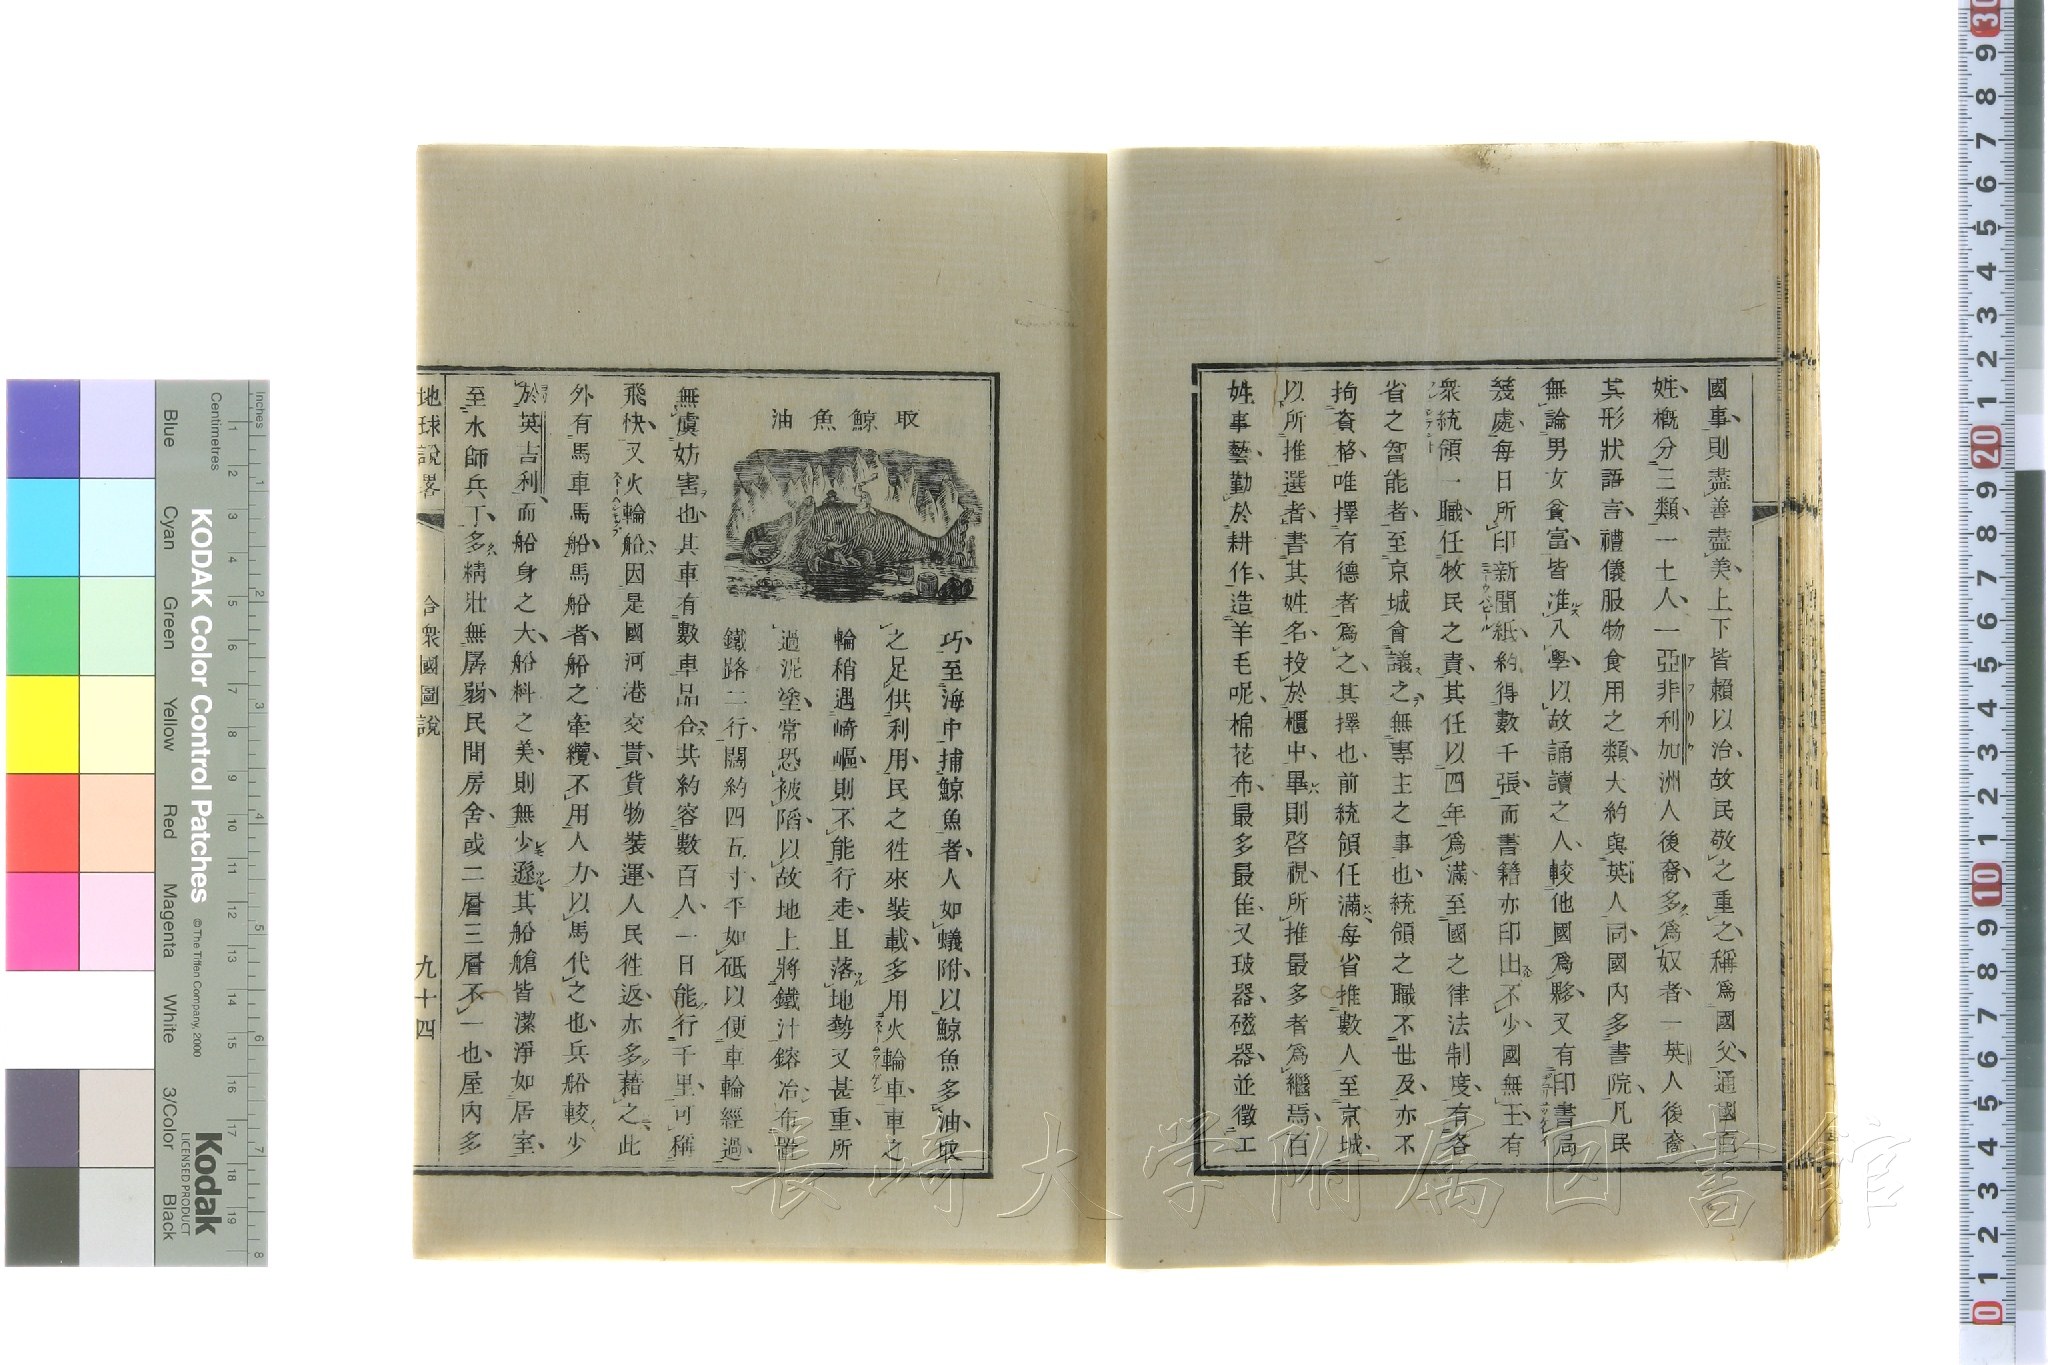 國事則盡善盡美上下皆賴以治故民敬之重之稱爲國父通國百
姓槪分三類一土人一亞非利加洲人後裔多爲奴者一英人後裔
其形狀語言禮儀服物食用之類大約與英人同國內多書院凡民
無論男女貧富皆准入學以故誦讀之人較他國爲夥又有印書局
幾處每日所印新聞紙約得數千張而書籍亦印出不少國無王有
衆統領一職任牧民之責其任以四年爲滿至國之律法制度有各
省之智能者至京城會議之無專主之事也統領之職不世及亦不
拘資格唯擇有德者爲之其擇也前統領任滿每省推數人至京城
以所推選者書其姓名投於櫃中畢則啓視所推最多者爲繼焉百
姓事藝勤於耕作造羊毛呢棉花布最多最佳又玻器磁器並徵工
取鯨魚油
巧至海中捕鯨魚者人如蟻附以鯨魚多油取
之足供利用民之徃來裝載多用火輪車車之
輪稍遇崎嶇則不能行走且落地勢又甚重所
過泥塗常恐被陷以故地上將鐵汁鎔冶布置
鐵路二行闊約四五寸平如砥以便車輪經過
無虞妨害也其車有數車品合共約容數百人一日能行千里可稱
飛快又火輪船因是國河港交貫貨物裝運人民徃返亦多藉之此
外有馬車馬船馬船者船之牽纜不用人力以馬代之也兵船較少
於英吉利而船身之大船料之美則無少遜其船艙皆潔淨如居室
至水師兵丁多精壯無孱弱民間房舍或二層三層不一也屋內多
地球說畧
合衆國圖說
九十四
長崎大学附属図書館
KODAK Color Control Patches
© The Tiffen Company, 2000
Kodak
LICENSED PRODUCT
Inches
Centimetres
Blue
Cyan
Green
Yellow
Red
Magenta
White
3/Color
Black